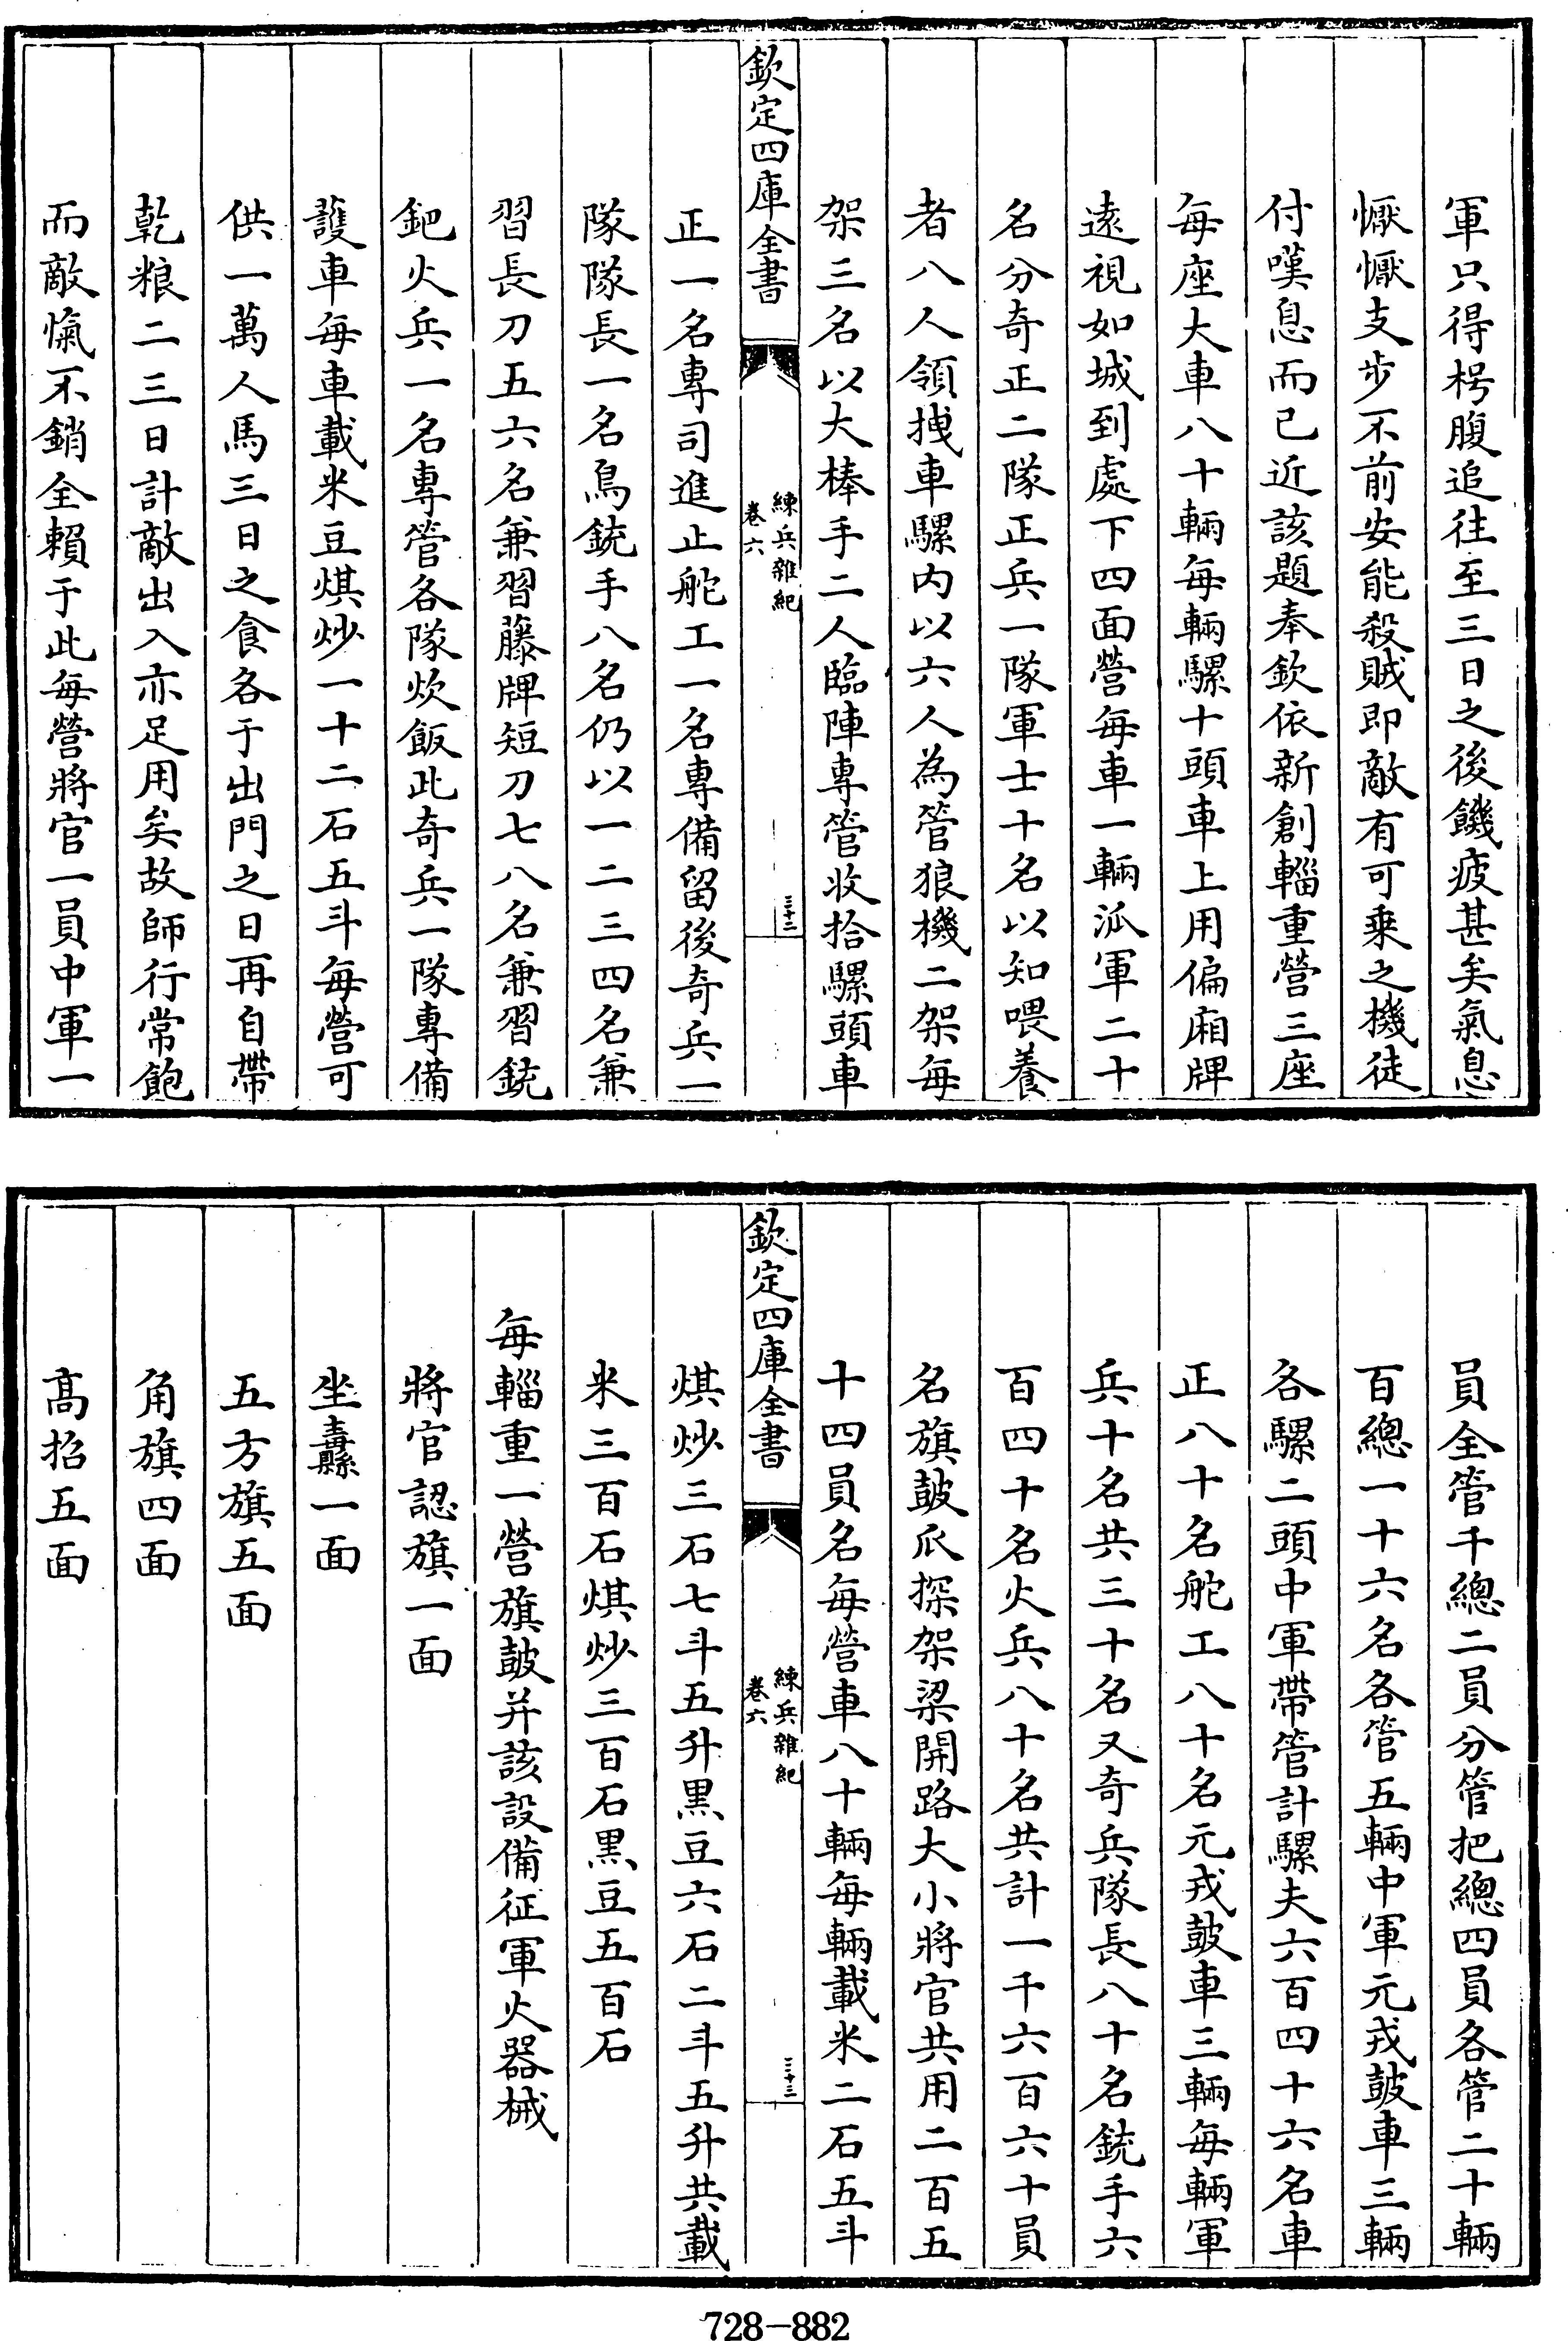 軍只得枵腹追往至三日之後饑疲甚矣氣息
懨懨支步不前安能殺賊即敵有可乗之機徒
付嘆息而已近該題奉欽依新創輜重營三座
每座大車八十輛每輛騾十頭車上用偏廂牌
逺視如城到處下四面營每車一輛派軍二十
名分奇正二隊正兵一隊軍士十名以知喂養
者八人領拽車騾内以六人為管狼機二架每
架三名以大棒手二人臨陣專管收拾騾頭車
欽定四庫全書
練兵雜紀
卷六
三十二
正一名專司進止舵工一名專備留後奇兵一
隊隊長一名鳥銃手八名仍以一二三四名兼
習長刀五六名兼習藤牌短刀七八名兼習銃
鈀火兵一名專管各隊炊飯此奇兵一隊專備
護車每車載米豆烘炒一十二石五斗每營可
供一萬人馬三日之食各于出門之日再自帶
乾粮二三日計敵出入亦足用矣故師行常飽
而敵愾不銷全賴于此每營將官一員中軍一
員全管千總二員分管把總四員各管二十輛
百總一十六名各管五輛中軍元戎鼓車三輛
各騾二頭中軍帶管計騾夫六百四十六名車
正八十名舵工八十名元戎鼓車三輛每輛軍
兵十名共三十名又奇兵隊長八十名銃手六
百四十名火兵八十名共計一千六百六十員
名旗鼓爪探架梁開路大小將官共用二百五
十四員名每營車八十輛每輛載米二石五斗
欽定四庫全書
練兵雜紀
卷六
三十三
烘炒三石七斗五升黑豆六石二斗五升共載
米三百石烘炒三百石黑豆五百石
每輜重一營旗鼓并該設備征軍火器械
將官認旗一面
坐纛一面
五方旗五面
角旗四面
髙招五面
728-882